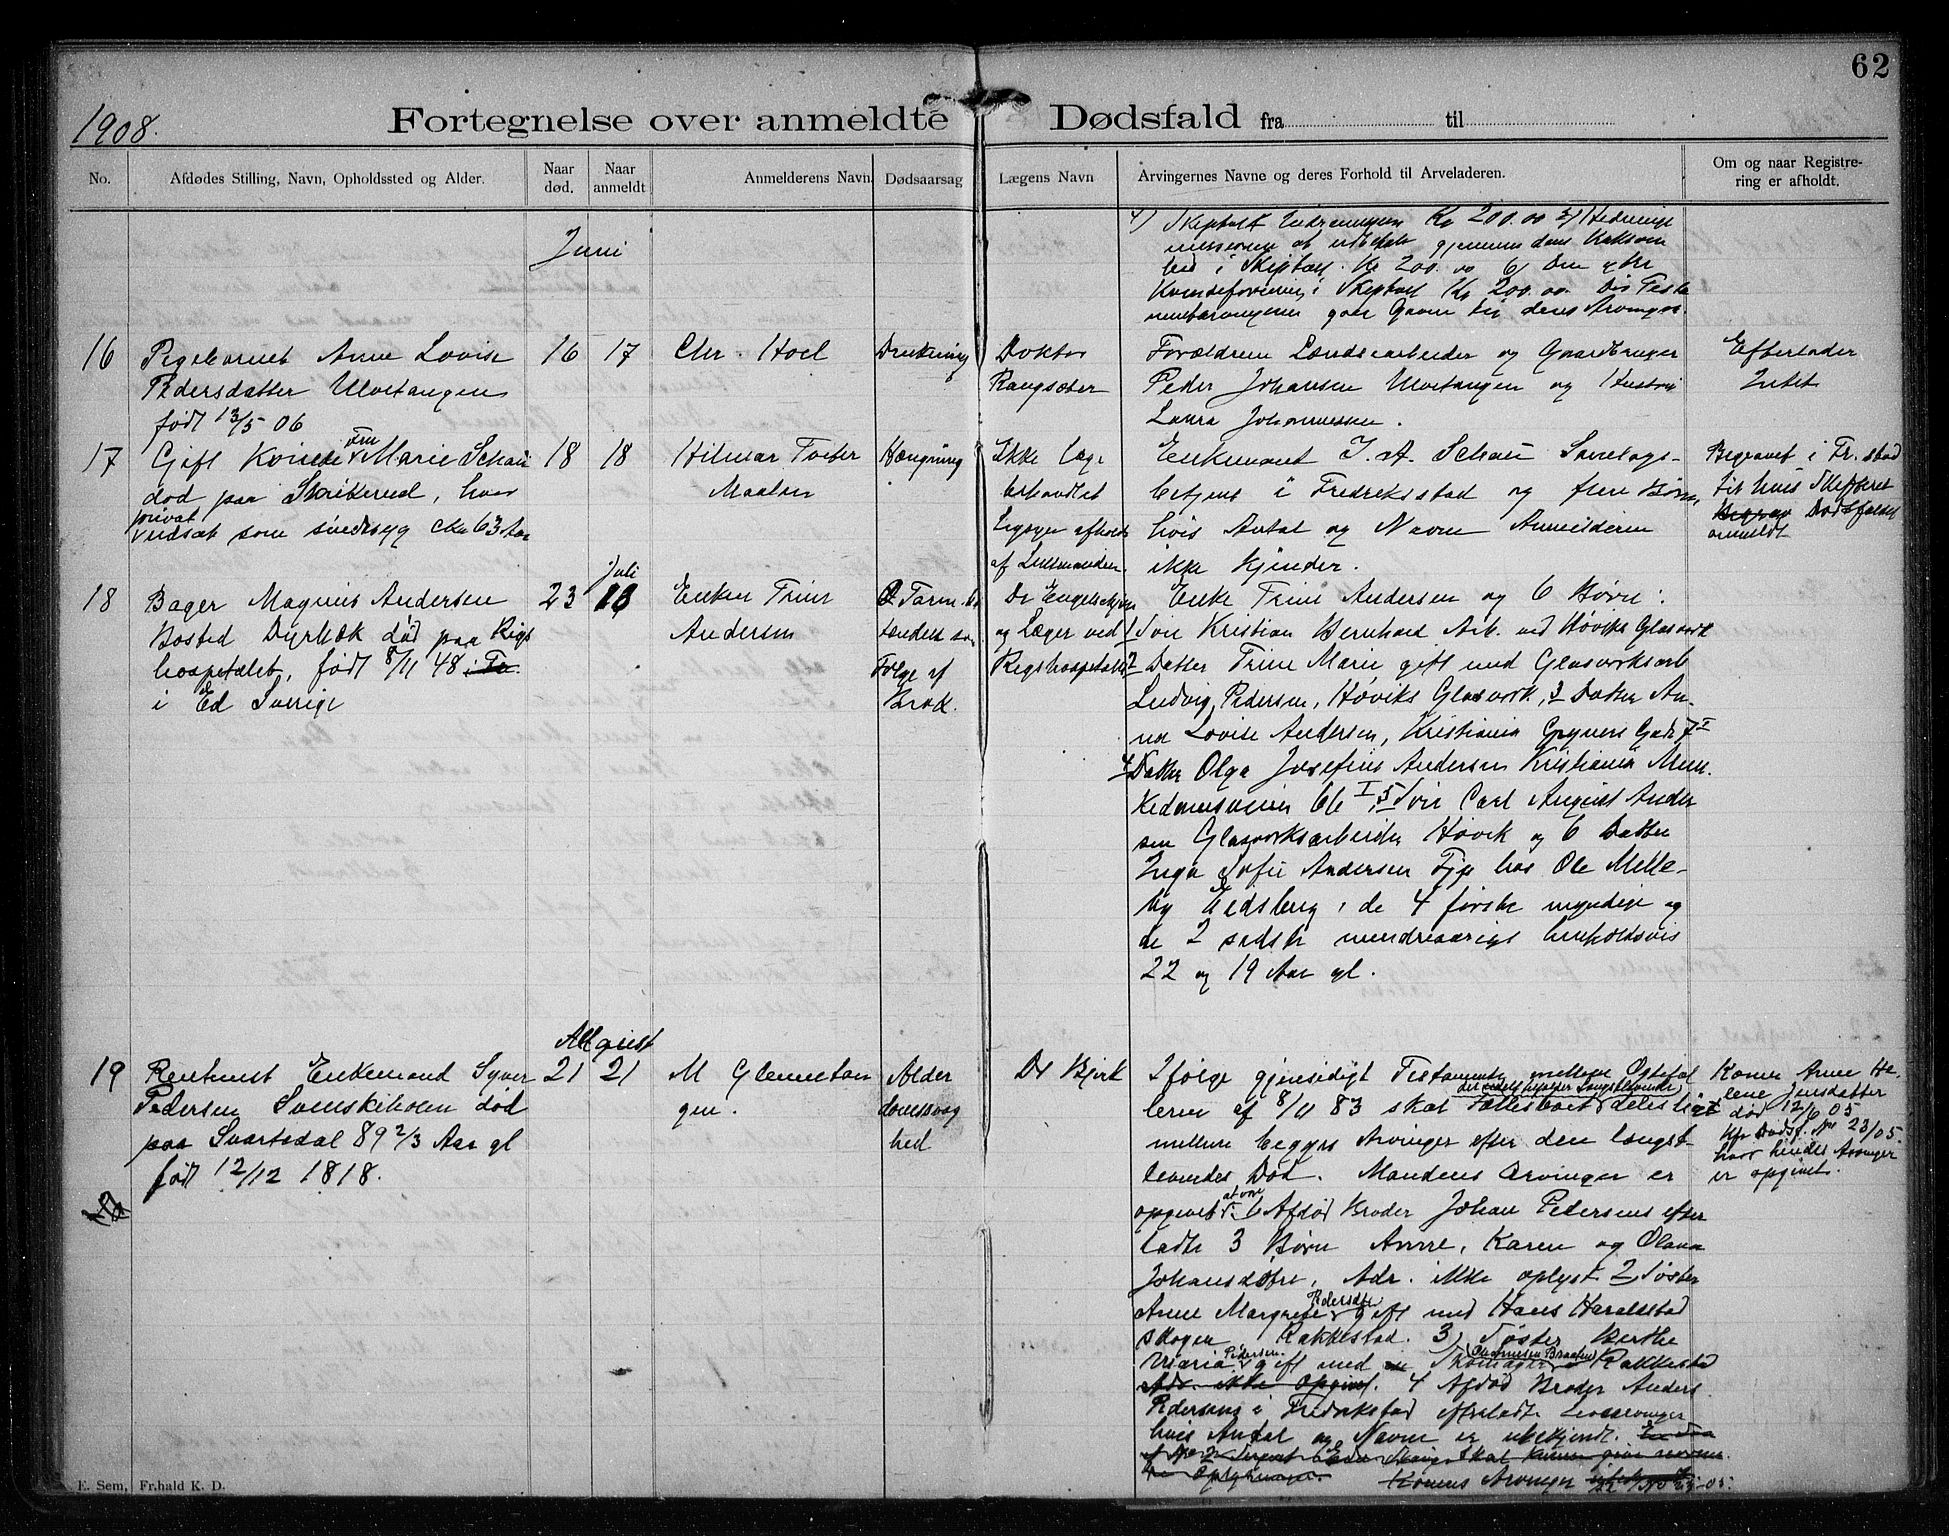 62
1908.
Fortegnelse over anmeldte Dødsfald fra til
No.
Afdødes Stilling, Navn, Opholdssted og Alder.
Naar død.
Naar anmeldt
Anmelderens Navn
Dødsaarsag
Lægens Navn
Arvingernes Navne og deres Forhold til Arveladeren.
Om og naar Registrering er afholdt.
Juni
Kr 200.00
gjennem dens
i Skiptvet. Kr 200.00 6)
Kvindeforening i Skiptvet Kr 200.00.
16
Pigebarnet Anne Lovise
Pedersdatter Ulvetangen
født 13/5 06
16
17
Chr. Hoel
Drukning
Doktor
Rangsæter
Forældrene Landearbeider og Gaardbruger
Peder Johansen Ulvetangen og Hustru
Laura Johannessen.
Efterlader
Intet
17
Gift Kvinde Fru Marie Schau
død paa Skrikerud, hvor
privat
udsat som sindssyg cka 63 Aar
18
18
Hilmar Tveter
Maalen
Hængning
Ikke læge
behandlet
Ligsyn afholdt
af Lensmanden.
Enkemand I. A. Schau Sorelags-
betjent i Fredriksstad og flere Børn,
hvis Antal og Navne Anmelderen
ikke kjender.
Begravet i Fr.stad
til hvis Skifteret
Dødsfaldet
anmeldt
Juli
18
Bager Magnus Andersen
Bosted Dyrbæk død paa Rigs
hospitalet, født 8/11 48
i Ed Sverige
23
16
Enken Trine
Andersen
Tarm
Følge af
Brok.
Dr Engelschjøn
og Læger ved
Rigshospitalet
Enke Trine Andersen og 6 Børn:
1 Søn Kristian Bernhard Arb. ved Høviks Glasværk
2 Datter Trine Marie gift med Glasværksarb
Ludvig Pedersen, Høviks Glasværk, 3 Datter An-
na Lovise Andersen, Kristiania Gryners Gade 7 I
4 Datter Olga Josefine Andersen Kristiania Mun-
kedamsveien 66 I, 5 Søn Carl August Ander
sen Glasværksarbeider Høvik og 6 Datter
Inga Sofie Andersen Tje hos Ole Melle-
by Eidsberg, de 4 første myndige og
de 2 sidste mindreaarige henholdsvis
22 og 19 Aar gl.
August
19
Rentenist Enkemand Syver
Pedersen Svenskeholen død
paa Svartedal 89 2/3 Aar gl
født 12/12 1818.
21
21
M Glenneton
gen.
Alder
domssvag
hed
Dr Bjerk
Ifølge gjensidigt Testamente mellem Ægtefol
lerne af 8/11 83 skal Fællesboet deles ligt
mellem begges Arvinger efter den længst
levendes Død. Mandens Arvinger er
opgivet at være 1 Afdød Broder Johan Pedersens efter
ladte 3 Børn Anne, Karen og Olava
Johansdøtre, Adr. ikke oplyst 2 Søster
Anne Margrete Pedersdtr gift med Hans Haraldstad
skogen Rakkestad. 3) Søster Berthe
Maria Pedersen gift med Skomager Rakkestad
Adr. ikke opgivet. 4 Afdød Broder Anders
Pedersens i Fredrikstad efterladte Livsarvinger
hvis Antal og Navne er ubekjendt.
Oplysninger. Konens Arvinger
Konen Anne He-
lene Jensdatter
død 12/6 05
Kfr Dødsf. No 23/05.
hvor hendes Arvinger
er opgivet.
E. Sem, Fr.hald K. D.